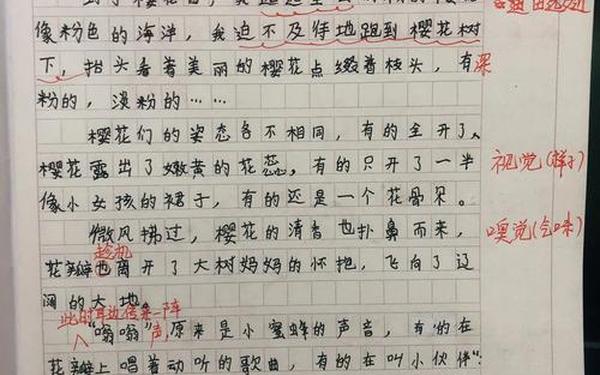 像粉色的海洋，我迫不及待地跑到樱花树
下，抬头看着美丽的樱花点缀着枝头，有深
粉的，淡粉的……
樱花们的姿态各不相同，有的全开了、
樱花露出了嫩黄的花蕊，有的只开了一半
视觉(样子)
像小女孩的裙子，有的还是一个花骨朵。
微风拂过，樱花的清香也扑鼻而来，
嗅觉(气味)
趁机
花瓣也离开了大树妈妈的怀抱，飞向了辽
阔的大地。
此时耳边传来一阵
"嗡嗡"声，原来是小蜜蜂的声音，有的在
花瓣上唱着动听的歌曲，有的在叫小伙伴"